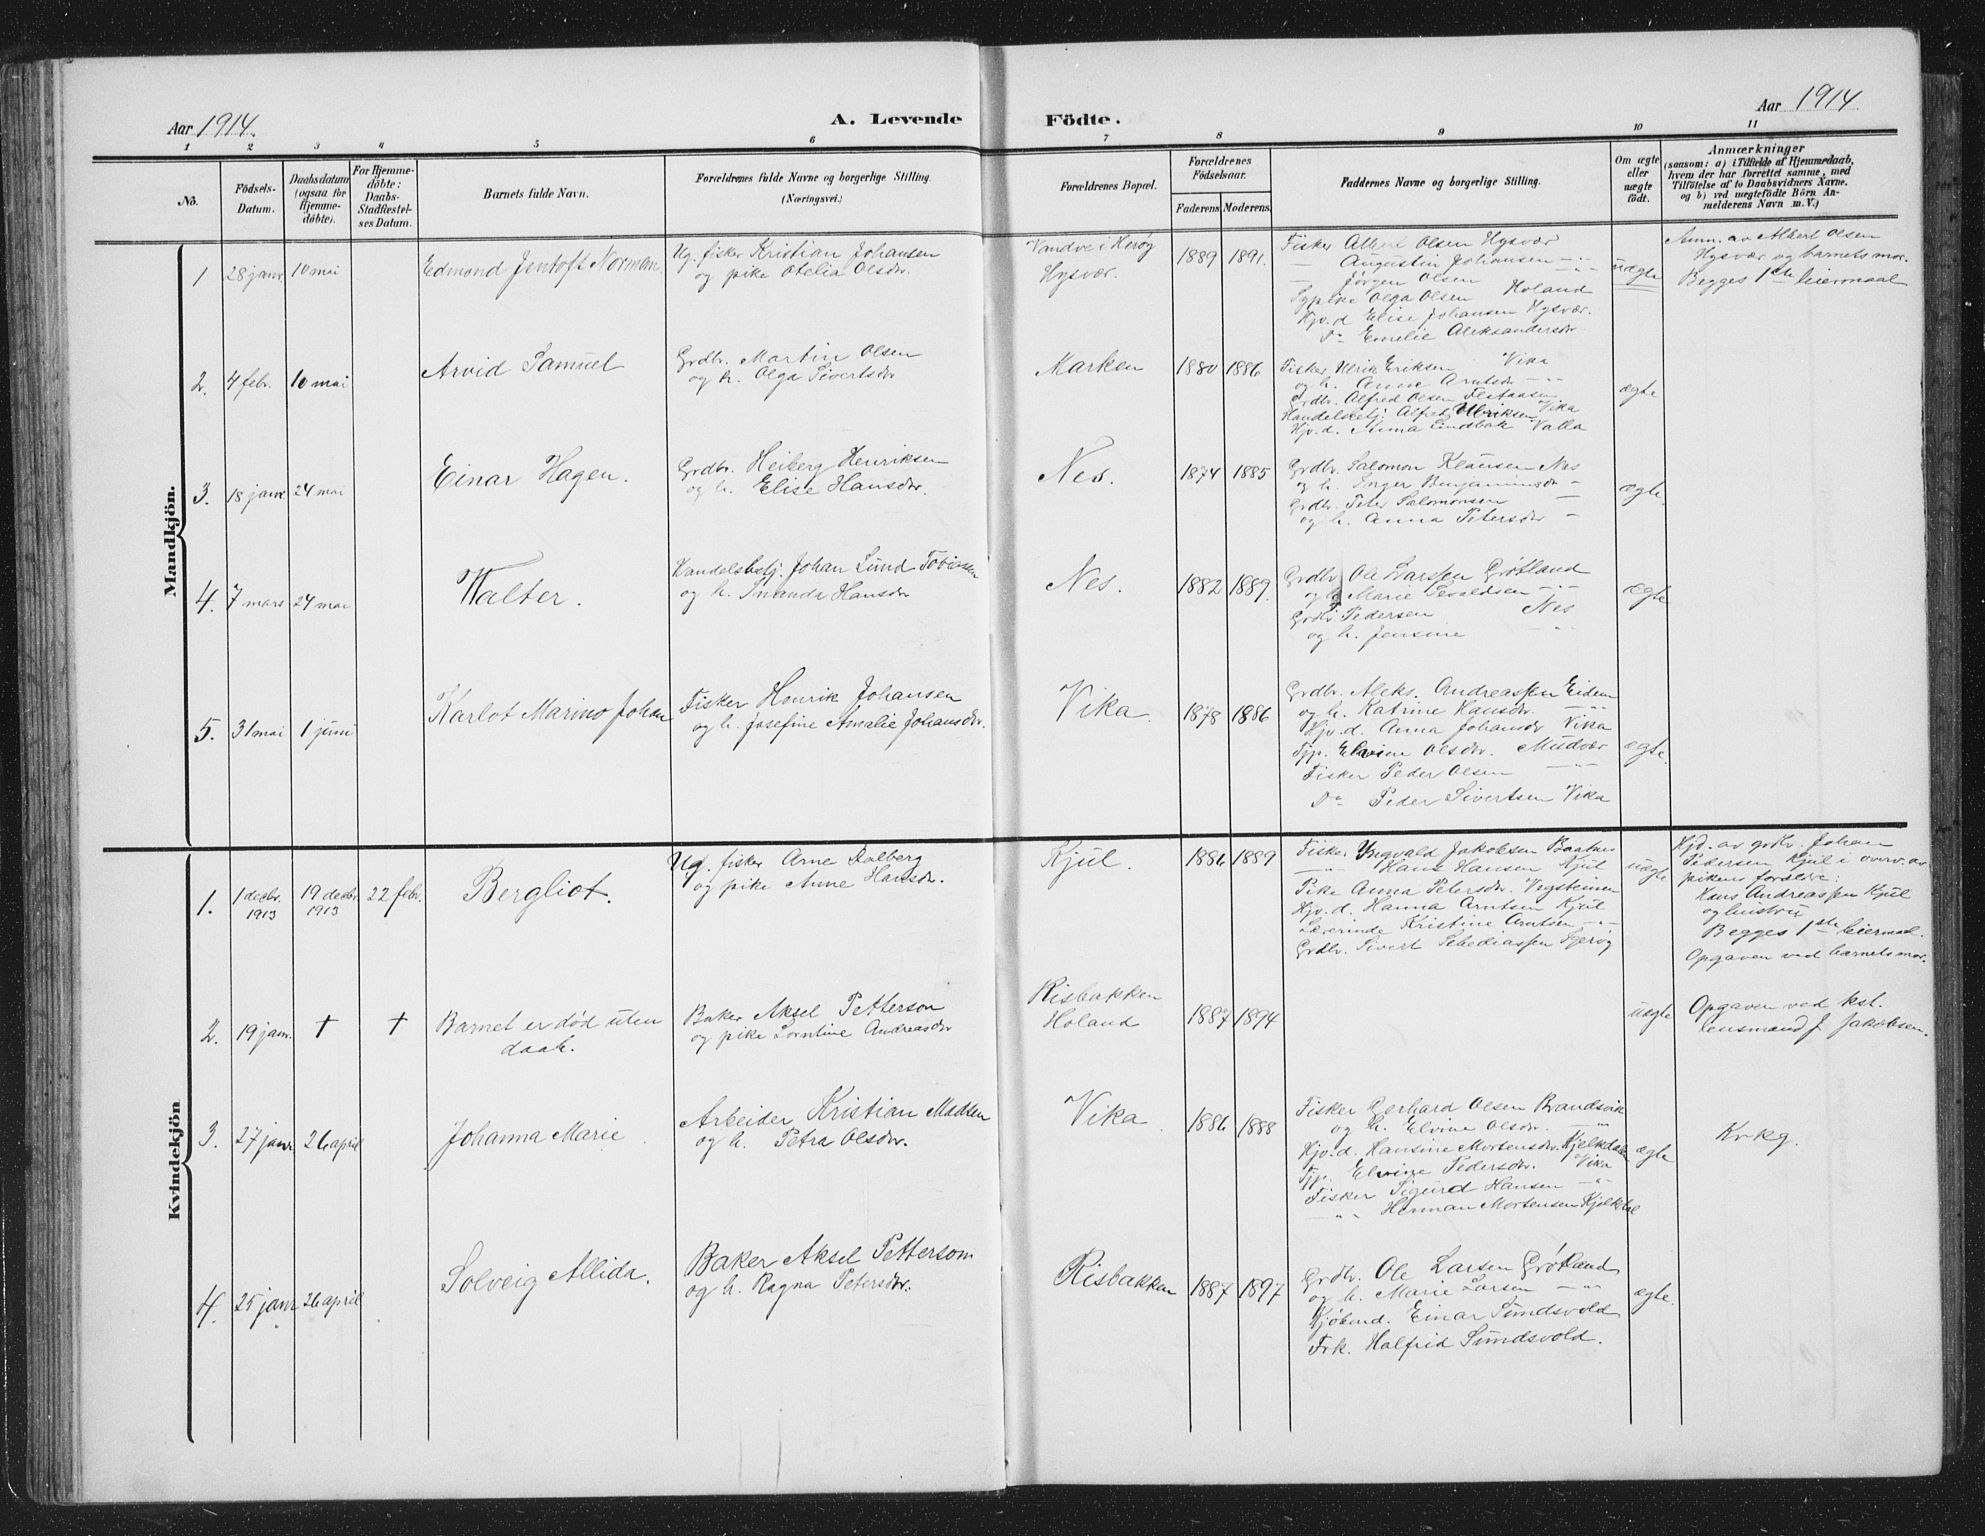 Aar 1914.
A. Levende Födte.
Aar 1914
1 2 3 4 5 6 7 8 9 10 11
No.
Födsels-
Datum.
Daabsdatum
(ogsaa for
Hjemme-
döbte).
For Hjemme-
döbte:
Daabs-
Stadfæstel-
ses Datum.
Barnets fulde Navn.
Forældrenes fulde Navne og borgerlige Stilling.
(Næringsvei.)
Forældrenes Bopæl.
Forældrenes
Födselsaar.
Faderens. Moderens.
Faddernes Navne og borgerlige Stilling.
Om ægte
eller
uægte
födt.
Anmærkninger
(saasom: a) i Tilfælde af Hjemmedaab,
hvem der har forrettet samme, med
Tilföielse af to Daabsvidners Navne.
og b) ved uægtefödte Börn An-
melderens Navn m. V.)
Mandkjön.
1 28 janr. 10 mai
Edmond Jentoft Norman.
Ug. fisker Kristian Johansen
og pike Otelia Olsdr.
Vandve i Herøy
Hysvær.
1889 1891.
Fisker Albert Olsen Hysvær
— Augustin Johansen —"—
— Jørgen Olsen —"—
Sypike Olga Olsen Holand
Hjv. d. Elise Johansen Hysvær.
Do Emelie Aleksandersdr
uægte
Anm. av Albert Olsen
Hysvær og barnets mor.
Begges 1ste leiermaal
2. 4 febr. 10 mai
Arvid Samuel
Grdbr. Martin Olsen
og h. Olga Sivertsdr
Marken
1880 1886
Fisker Ulrik Eriksen Vika
og h. Anne Arntsdr —"—
Grdbr. Alfred Olsen
Handelsbetj. Alfred Ulriksen Vika
Hjv. d. Anna Lindbak Valla
ægte
3. 18 janr 24 mai
Einar Hagen.
Grdbr. Heiberg Henriksen
og h. Elise Hansdr.
Nes.
1874 1885
Grdbr. Salomon Klausen Nes
og h. Inger Benjaminsdr —
Grdbr. Peter Salomonsen —
og h. Anna Petersdr —
ægte
4. 7 mars 24 mai
Walter.
Handelsbetj. Johan Lund Tobiassen
og h. Hansdr
Nes.
1882 1889.
Grdbr Ole Larssen Grøtland
og h Marie Sevaldsen —"—
Grdbr Pedersen Nes
og h. Jensine "
ægte
5. 31 mai 1 juni
Karlot Marino Johan
Fisker Henrik Johansen
og h. Josefine Amalie Johansdr.
Vika.
1878 1886
Grdbr. Aleks. Andreassen Eidem
og h. Katrine Hansdr. —"—
Hjv. d. Anna Johansdr Vika
Tjp. Elvine Olsdr. Mudvær
Fisker Peder Olsen —"—
Do Peder Sivertsen Vika
ægte.
Kvindekjön
1. 1 decbr. 1913 19 decbr. 1913 22 febr.
Bergliot.
Ug. fisker Arne Dalberg
og pike Anne Hansdr.
Kjul.
1886 1889
Fisker Yngvald Jakobsen Baatnes
—"— Hans Hansen Kjul
Pike Anna Petersdr. Vegsteinen
Hjv. d. Hanna Arntsen Kjul
Lærerinde Kristine Arntsen —"—
Grdbr. Sivert
uægte
Hjd. av grdbr. Johan
Pedersen Kjul i overv. av
pikens forældre:
Hans Andreassen Kjul
og hustru
Begges 1ste leiermaal.
Opgaven ved barnets mor.
2. 19 janr. † †
Barnet er død uten
daab.
Baker Aksel Petterson
og pike Lorntine Andreasdr
Risbakken
Holand
1887 1894
uægte
Opgaven ved kst.
lensmand J. Jakobsen.
3. 27 janr 26 april
Johanna Marie
Arbeider Kristian Madsen
og h. Petra Olsdr.
Vika
1886 1888
Fisker Gerhard Olsen Brandsvik
og h. Elvine Olsdr. —"—
Hjv. d. Hansine Mortensdr. Kjelkdalen
Tjp. Elvine Pedersdr. Vika
Fisker Sigurd Hansen "
—"— Herman Mortensen Kjelkdal
ægte
Kvkg.
4. 25 janr 26 april
Solveig Allida.
Baker Aksel Petterson
og h. Ragna Petersdr.
Risbakken
1887 1897
Grdbr. Ole Larsen Grøtland
og h. Marie Larsen —"—
Kjøbmd. Einar Sundsvold
Frk. Halfrid Sundsvold.
ægte.